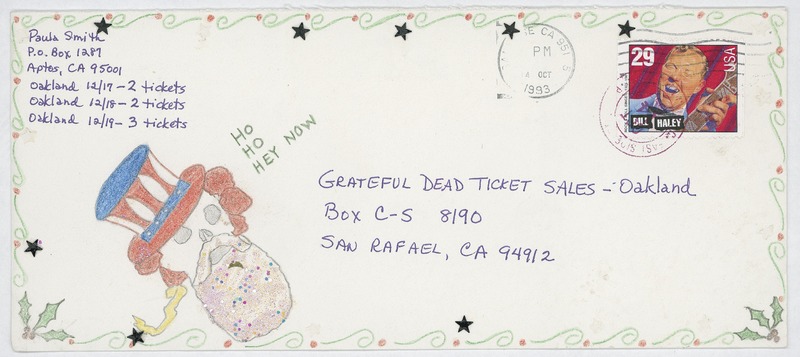 Paula Smith
P.O. Box 1287
Aptos, CA 95001
Oakland 12/17 - 2 tickets
Oakland 12/18 - 2 tickets
Oakland 12/19 - 3 tickets
HO
HO
HEY NOW
CA 951
PM
OCT
1993
29
USA
BILL HALEY
GRATEFUL DEAD TICKET SALES - Oakland
Box C-S 8190
SAN RAFAEL, CA 94912